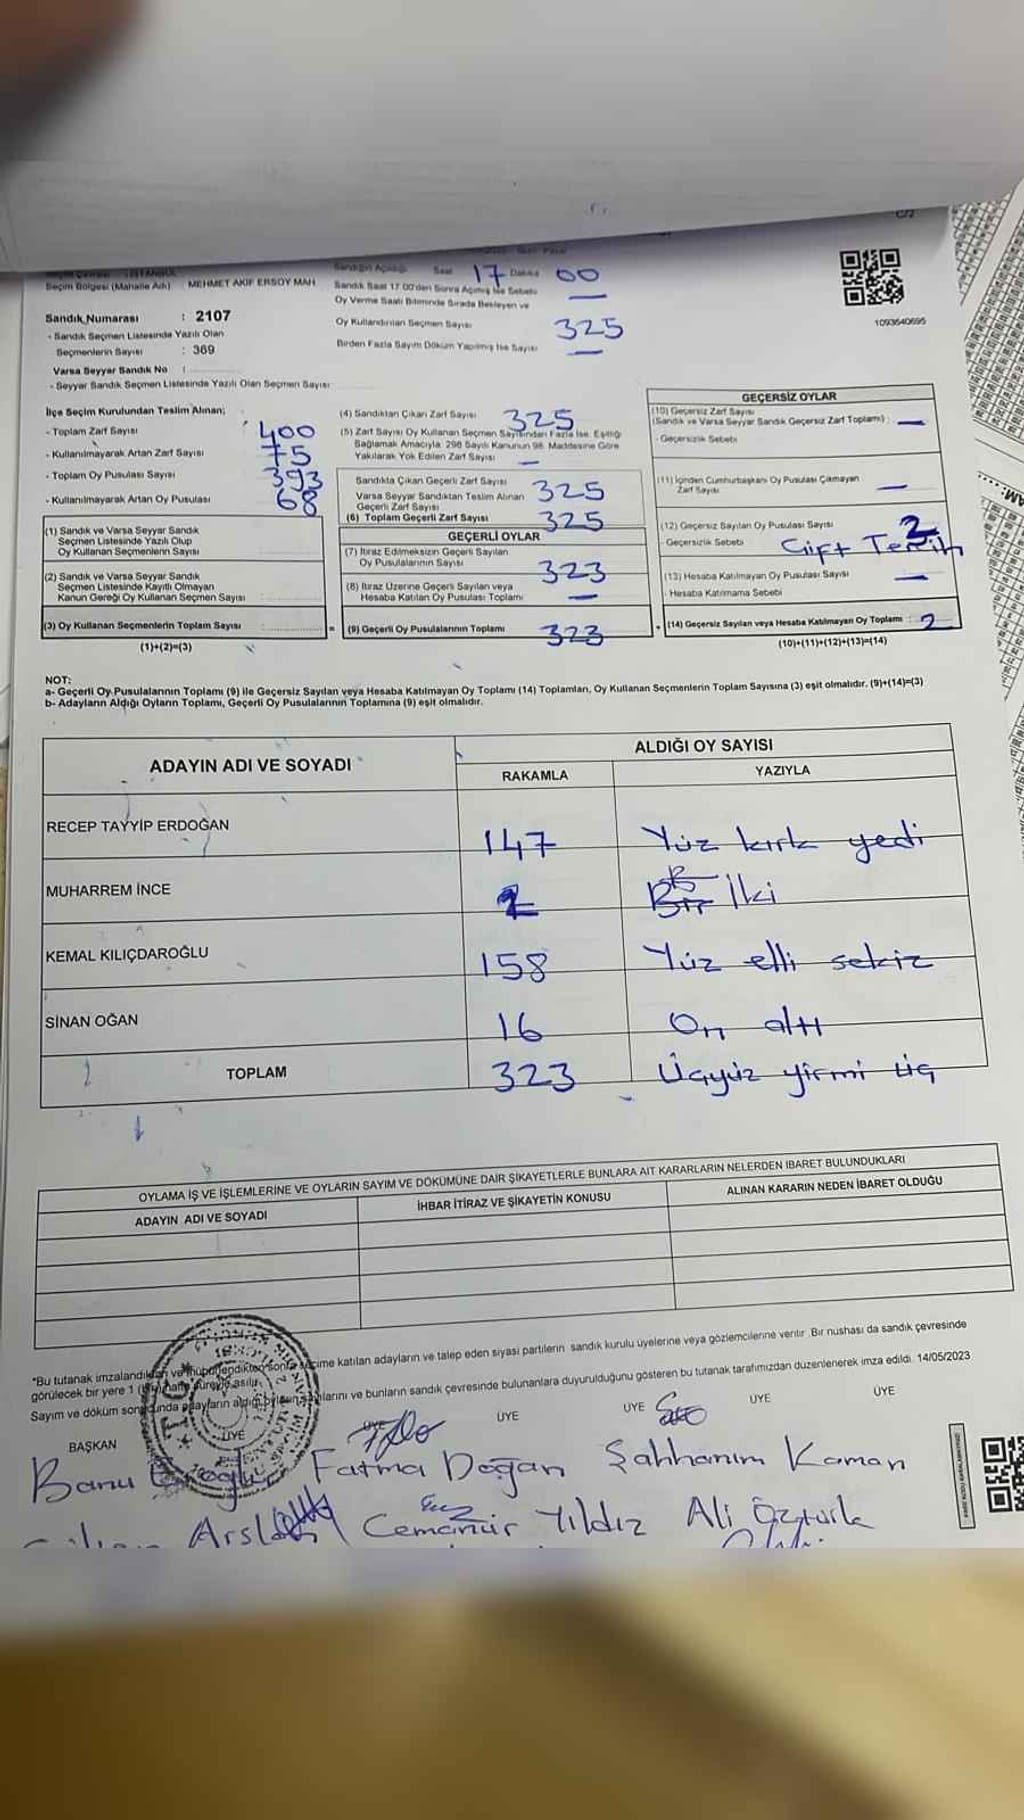 Seçim Bölgesi (Mahalle Adı) : MEHMET AKİF ERSOY MAH
Sandık Numarası : 2107
- Sandık Seçmen Listesinde Yazılı Olan
Seçmenlerin Sayısı : 369
Varsa Seyyar Sandık No :
- Seyyar Sandık Seçmen Listesinde Yazılı Olan Seçmen Sayısı
Sandığın Açıldığı Saat 17 Dakika 00
Sandık Saat 17.00'den Sonra Açılmış İse Sebebi —
Oy Verme Saati Bitiminde Sırada Bekleyen ve
Oy Kullandırılan Seçmen Sayısı 325
Birden Fazla Sayım Döküm Yapılmış İse Sayısı —
1093640695
İlçe Seçim Kurulundan Teslim Alınan;
- Toplam Zarf Sayısı 400
- Kullanılmayarak Artan Zarf Sayısı 75
- Toplam Oy Pusulası Sayısı 393
- Kullanılmayarak Artan Oy Pusulası 68
(1) Sandık ve Varsa Seyyar Sandık
Seçmen Listesinde Yazılı Olup
Oy Kullanan Seçmenlerin Sayısı
(2) Sandık ve Varsa Seyyar Sandık
Seçmen Listesinde Kayıtlı Olmayan
Kanun Gereği Oy Kullanan Seçmen Sayısı
(3) Oy Kullanan Seçmenlerin Toplam Sayısı
(1)+(2)=(3)
(4) Sandıktan Çıkan Zarf Sayısı 325
(5) Zarf Sayısı Oy Kullanan Seçmen Sayısından Fazla İse, Eşitliği
Sağlamak Amacıyla, 298 Sayılı Kanunun 98. Maddesine Göre
Yakılarak Yok Edilen Zarf Sayısı —
Sandıkta Çıkan Geçerli Zarf Sayısı 325
Varsa Seyyar Sandıktan Teslim Alınan
Geçerli Zarf Sayısı
(6) Toplam Geçerli Zarf Sayısı 325
GEÇERLİ OYLAR
(7) İtiraz Edilmeksizin Geçerli Sayılan
Oy Pusulalarının Sayısı 323
(8) İtiraz Üzerine Geçerli Sayılan veya
Hesaba Katılan Oy Pusulası Toplamı —
(9) Geçerli Oy Pusulalarının Toplamı 323
GEÇERSİZ OYLAR
(10) Geçersiz Zarf Sayısı
(Sandık ve Varsa Seyyar Sandık Geçersiz Zarf Toplamı) : —
- Geçersizlik Sebebi
(11) İçinden Cumhurbaşkanı Oy Pusulası Çıkmayan
Zarf Sayısı —
(12) Geçersiz Sayılan Oy Pusulası Sayısı 2
- Geçersizlik Sebebi Çift Tercih
(13) Hesaba Katılmayan Oy Pusulası Sayısı —
- Hesaba Katılmama Sebebi
(14) Geçersiz Sayılan veya Hesaba Katılmayan Oy Toplamı : 2
(10)+(11)+(12)+(13)=(14)
NOT:
a- Geçerli Oy Pusulalarının Toplamı (9) ile Geçersiz Sayılan veya Hesaba Katılmayan Oy Toplamı (14) Toplamları, Oy Kullanan Seçmenlerin Toplam Sayısına (3) eşit olmalıdır. (9)+(14)=(3)
b- Adayların Aldığı Oyların Toplamı, Geçerli Oy Pusulalarının Toplamına (9) eşit olmalıdır.
ADAYIN ADI VE SOYADI
ALDIĞI OY SAYISI
RAKAMLA YAZIYLA
RECEP TAYYİP ERDOĞAN 147 Yüz kırk yedi
MUHARREM İNCE 2 Bir İki
KEMAL KILIÇDAROĞLU 158 Yüz elli sekiz
SİNAN OĞAN 16 On altı
TOPLAM 323 Üçyüz yirmi üç
OYLAMA İŞ VE İŞLEMLERİNE VE OYLARIN SAYIM VE DÖKÜMÜNE DAİR ŞİKAYETLERLE BUNLARA AİT KARARLARIN NELERDEN İBARET BULUNDUKLARI
ADAYIN ADI VE SOYADI İHBAR İTİRAZ VE ŞİKAYETİN KONUSU ALINAN KARARIN NEDEN İBARET OLDUĞU
*Bu tutanak imzalandıktan ve mühürlendikten sonra seçime katılan adayların ve talep eden siyasi partilerin sandık kurulu üyelerine veya gözlemcilerine verilir. Bir nushası da sandık çevresinde
görülecek bir yere 1 (bir) hafta süreyle asılır.
Sayım ve döküm sonucunda adayların aldığı oyların sayılarını ve bunların sandık çevresinde bulunanlara duyurulduğunu gösteren bu tutanak tarafımızdan düzenlenerek imza edildi. 14/05/2023
BAŞKAN ÜYE ÜYE ÜYE ÜYE ÜYE ÜYE
Banu Fatma Doğan Şahhanım Kaman
Arslan Cemanur Yıldız Ali Öztürk